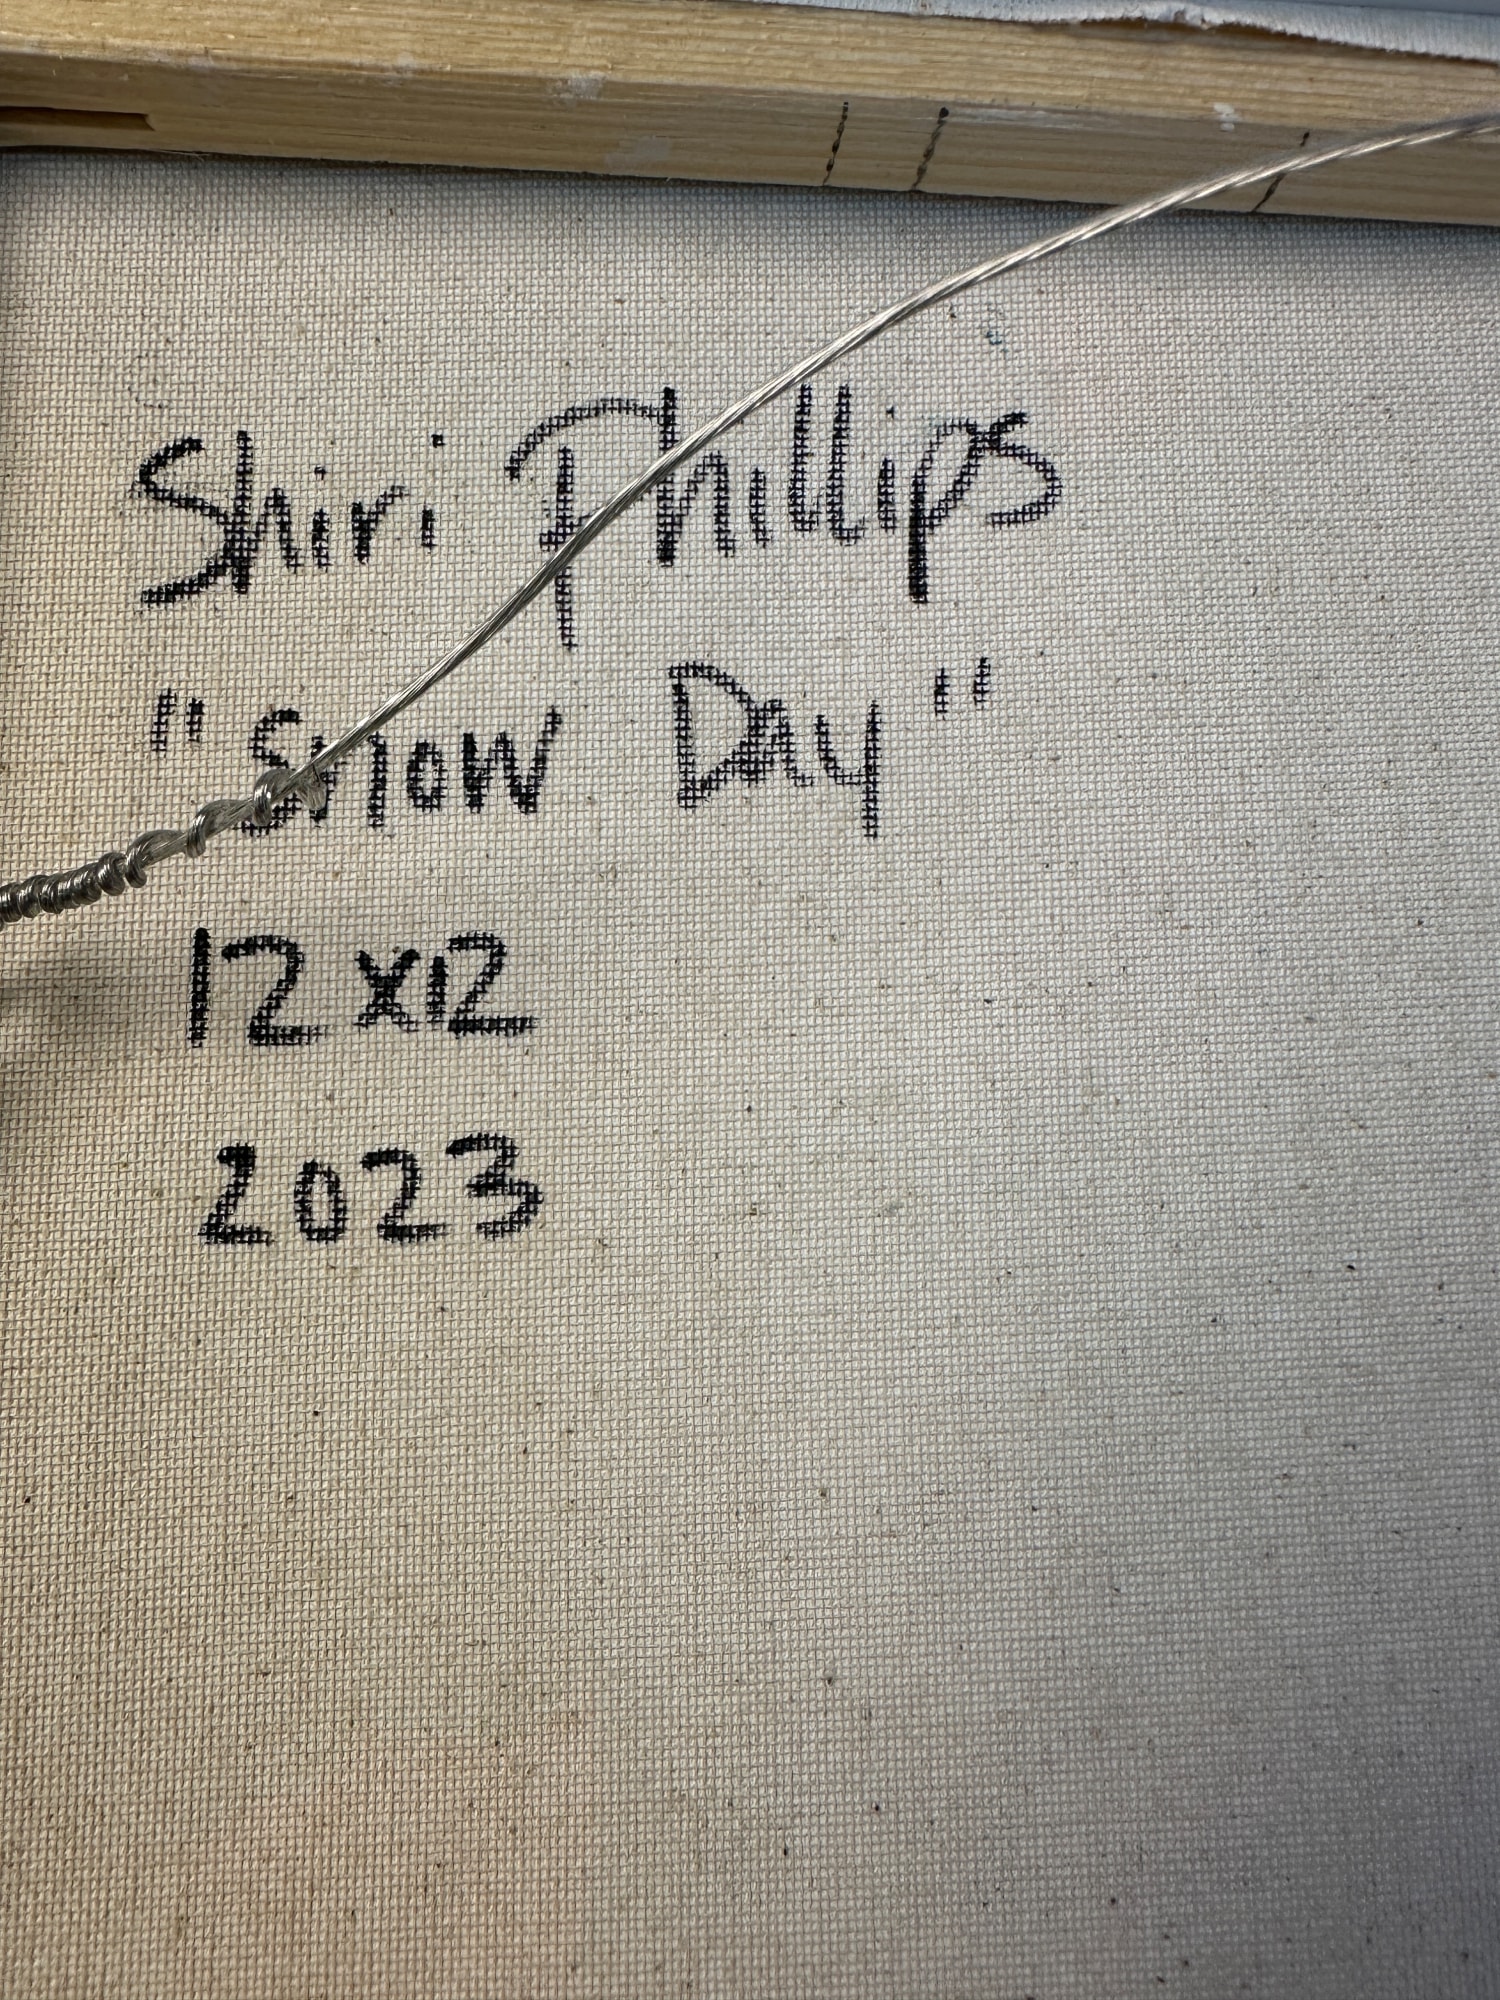 Shiri Phillips
"Snow Day"
12x12
2023